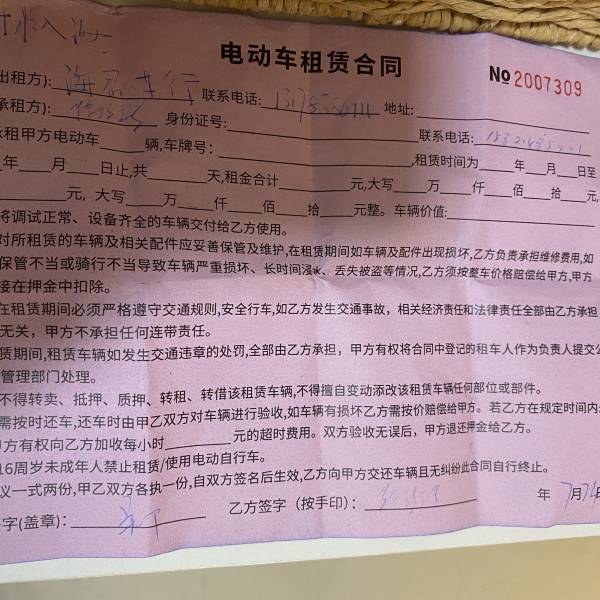 电动车租赁合同
No 2007309
出租方): 海 车行 联系电话: 地址:
承租方) 身份证号: 联系电话:
租甲方电动车 辆,车牌号: ,租赁时间为 年 月 日至
年 月 日止,共 天,租金合计 元,大写 万 仟 佰 拾
元, 大写 万 仟 佰 拾 元整。车辆价值:
将调试正常、设备齐全的车辆交付给乙方使用。
对所租赁的车辆及相关配件应妥善保管及维护,在租赁期间如车辆及配件出现损坏,乙方负责承担维修费用,如
保管不当或骑行不当导致车辆严重损坏、长时间浸水、丢失被盗等情况,乙方须按整车价格赔偿给甲方,甲方
接在押金中扣除。
在租赁期间必须严格遵守交通规则,安全行车,如乙方发生交通事故，相关经济责任和法律责任全部由乙方承担
无关，甲方不承担任何连带责任。
赁期间,租赁车辆如发生交通违章的处罚,全部由乙方承担，甲方有权将合同中登记的租车人作为负责人提交
管理部门处理。
不得转卖、抵押、质押、转租、转借该租赁车辆,不得擅自变动添改该租赁车辆任何部位或部件。
需按时还车,还车时由甲乙双方对车辆进行验收,如车辆有损坏乙方需按价赔偿给甲方。若乙方在规定时间内
甲方有权向乙方加收每小时 元的超时费用。双方验收无误后，甲方退还押金给乙方。
16周岁未成年人禁止租赁/使用电动自行车。
议一式两份,甲乙双方各执一份,自双方签名后生效,乙方向甲方交还车辆且无纠纷此合同自行终止。
签字(盖章): 乙方签字（按手印）: 年 7月24